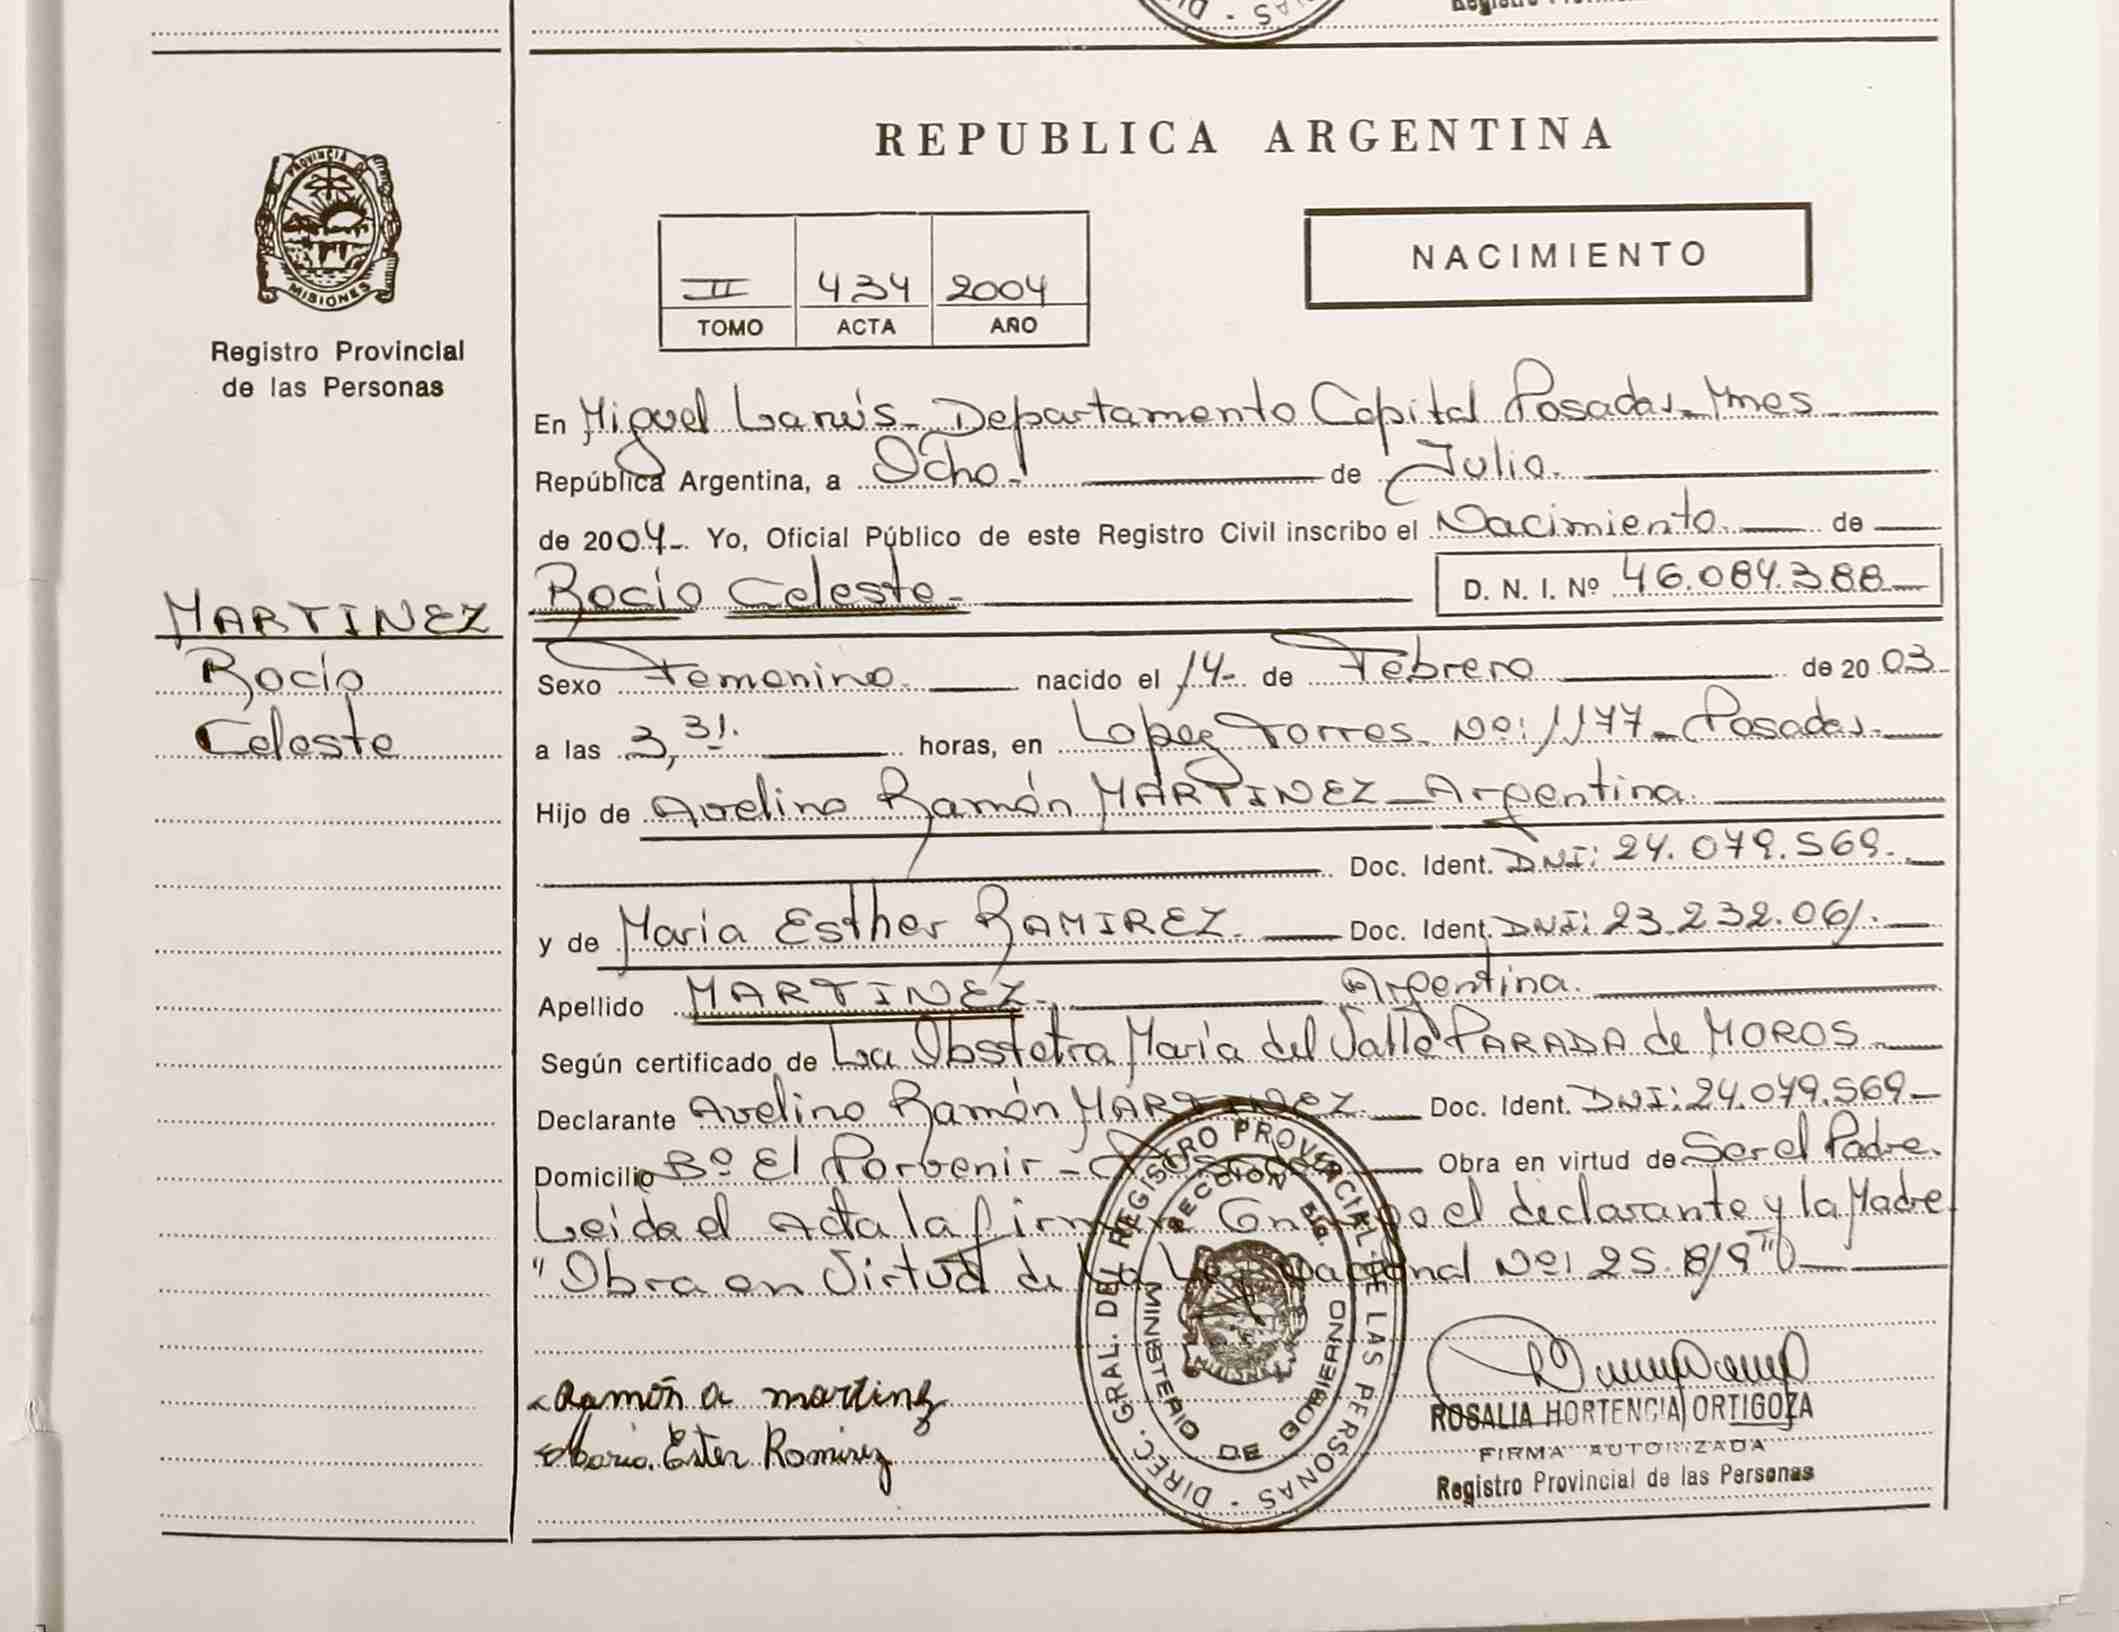 PROVINCIA DE
MISIONES
Registro Provincial
de las Personas
MARTINEZ
Rocío
Celeste
REPUBLICA ARGENTINA
II 434 2004
TOMO ACTA AÑO
NACIMIENTO
En Miguel Lanús - Departamento Capital Posadas - Mnes
República Argentina, a Ocho - de Julio.
de 2004 -. Yo, Oficial Público de este Registro Civil inscribo el Nacimiento de
Rocío Celeste - D. N. I. Nº 46.084.388
Sexo Femenino nacido el 14 - de Febrero de 2003 -
a las 3,31. horas, en Lopez Torres Nº: 1177 - Posadas -
Hijo de Avelino Ramón MARTINEZ - Argentina.
Doc. Ident. DNI: 24.079.569.
y de Maria Esther RAMIREZ. Doc. Ident. DNI: 23.232.061.
Apellido MARTINEZ - Argentina.
Según certificado de La Obstetra María del Valle PARADA de MOROS
Declarante Avelino Ramón MARTINEZ Doc. Ident. DNI: 24.079.569 -
Domicilio Bº El Porvenir - Obra en virtud de Ser el Padre.
Leida el Acta la firma el declarante y la Madre
"Obra en Virtud de La Ley Nacional Nº: 25.819"
Ramón a martinez
Maria Ester Ramirez
DIREC. GRAL. DEL REGISTRO PROVINCIAL DE LAS PERSONAS -
MINISTERIO DE GOBIERNO
ROSALIA HORTENCIA ORTIGOZA
FIRMA AUTORIZADA
Registro Provincial de las Personas